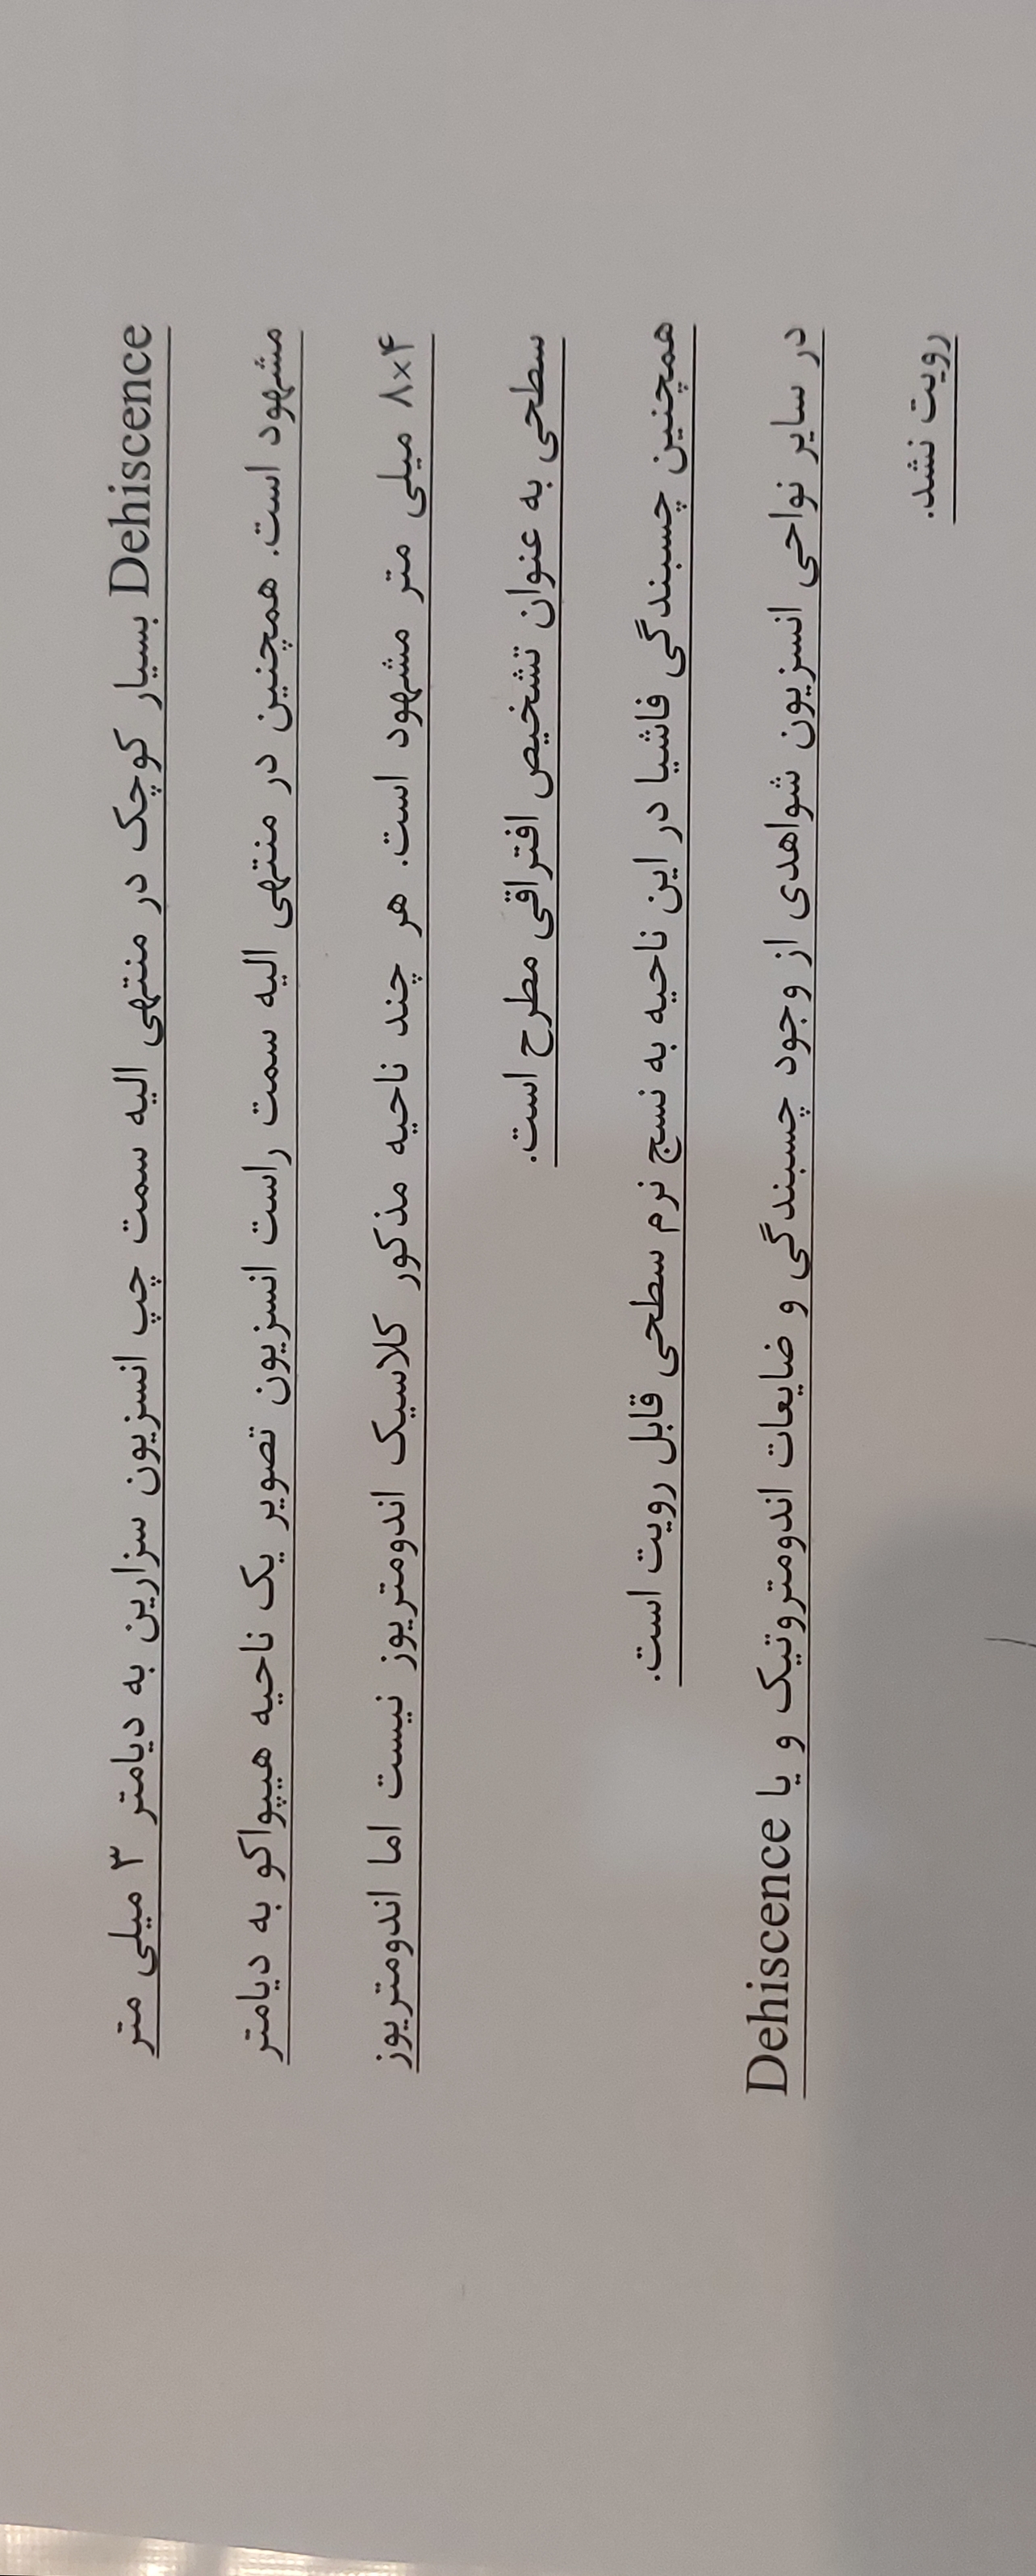 Dehiscence بسیار کوچک در منتهی الیه سمت چپ انسزیون سزارین به دیامتر ۳ میلی متر
مشهود است. همچنین در منتهی الیه سمت راست انسزیون تصویر یک ناحیه هیپواکو به دیامتر
۸×۴ میلی متر مشهود است. هر چند ناحیه مذکور کلاسیک اندومتریوز نیست اما اندومتریوز
سطحی به عنوان تشخیص افتراقی مطرح است.
همچنین چسبندگی فاشیا در این ناحیه به نسج نرم سطحی قابل رویت است.
در سایر نواحی انسزیون شواهدی از وجود چسبندگی و ضایعات اندومتروتیک و یا Dehiscence
رویت نشد.